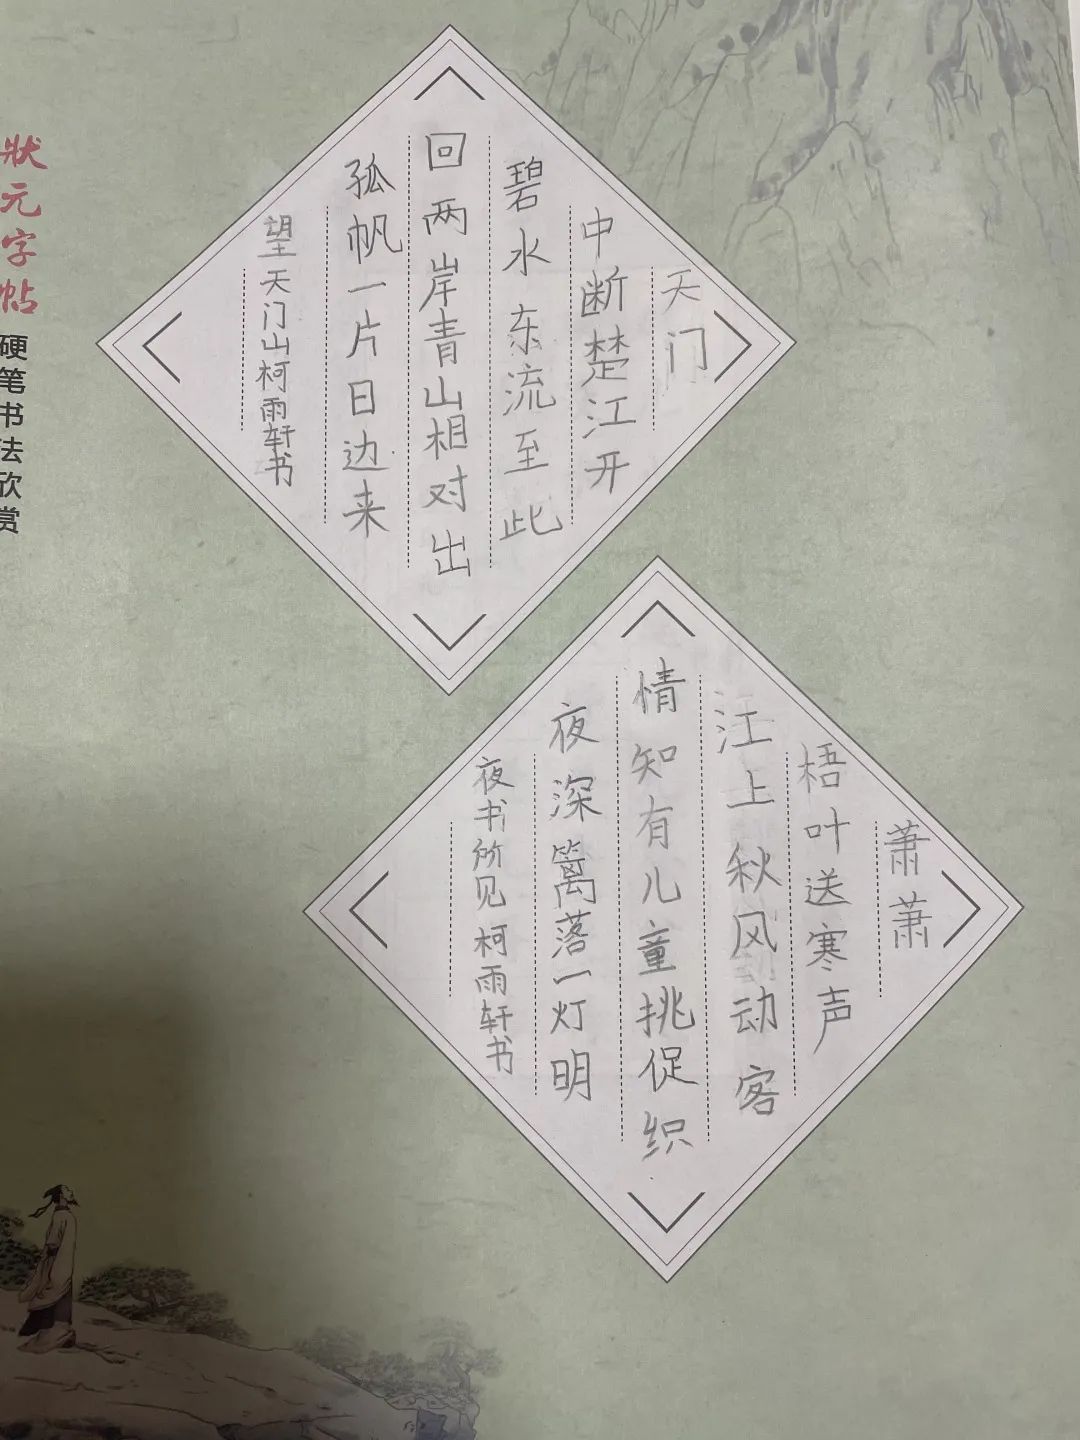 天门
中断楚江开
碧水东流至此
回两岸青山相对出
孤帆一片日边来
望天门山柯雨轩书
萧萧
梧叶送寒声
江上秋风动客
情知有儿童挑促织
夜深篱落一灯明
夜书所见柯雨轩书
狀元字帖
硬笔书法欣赏